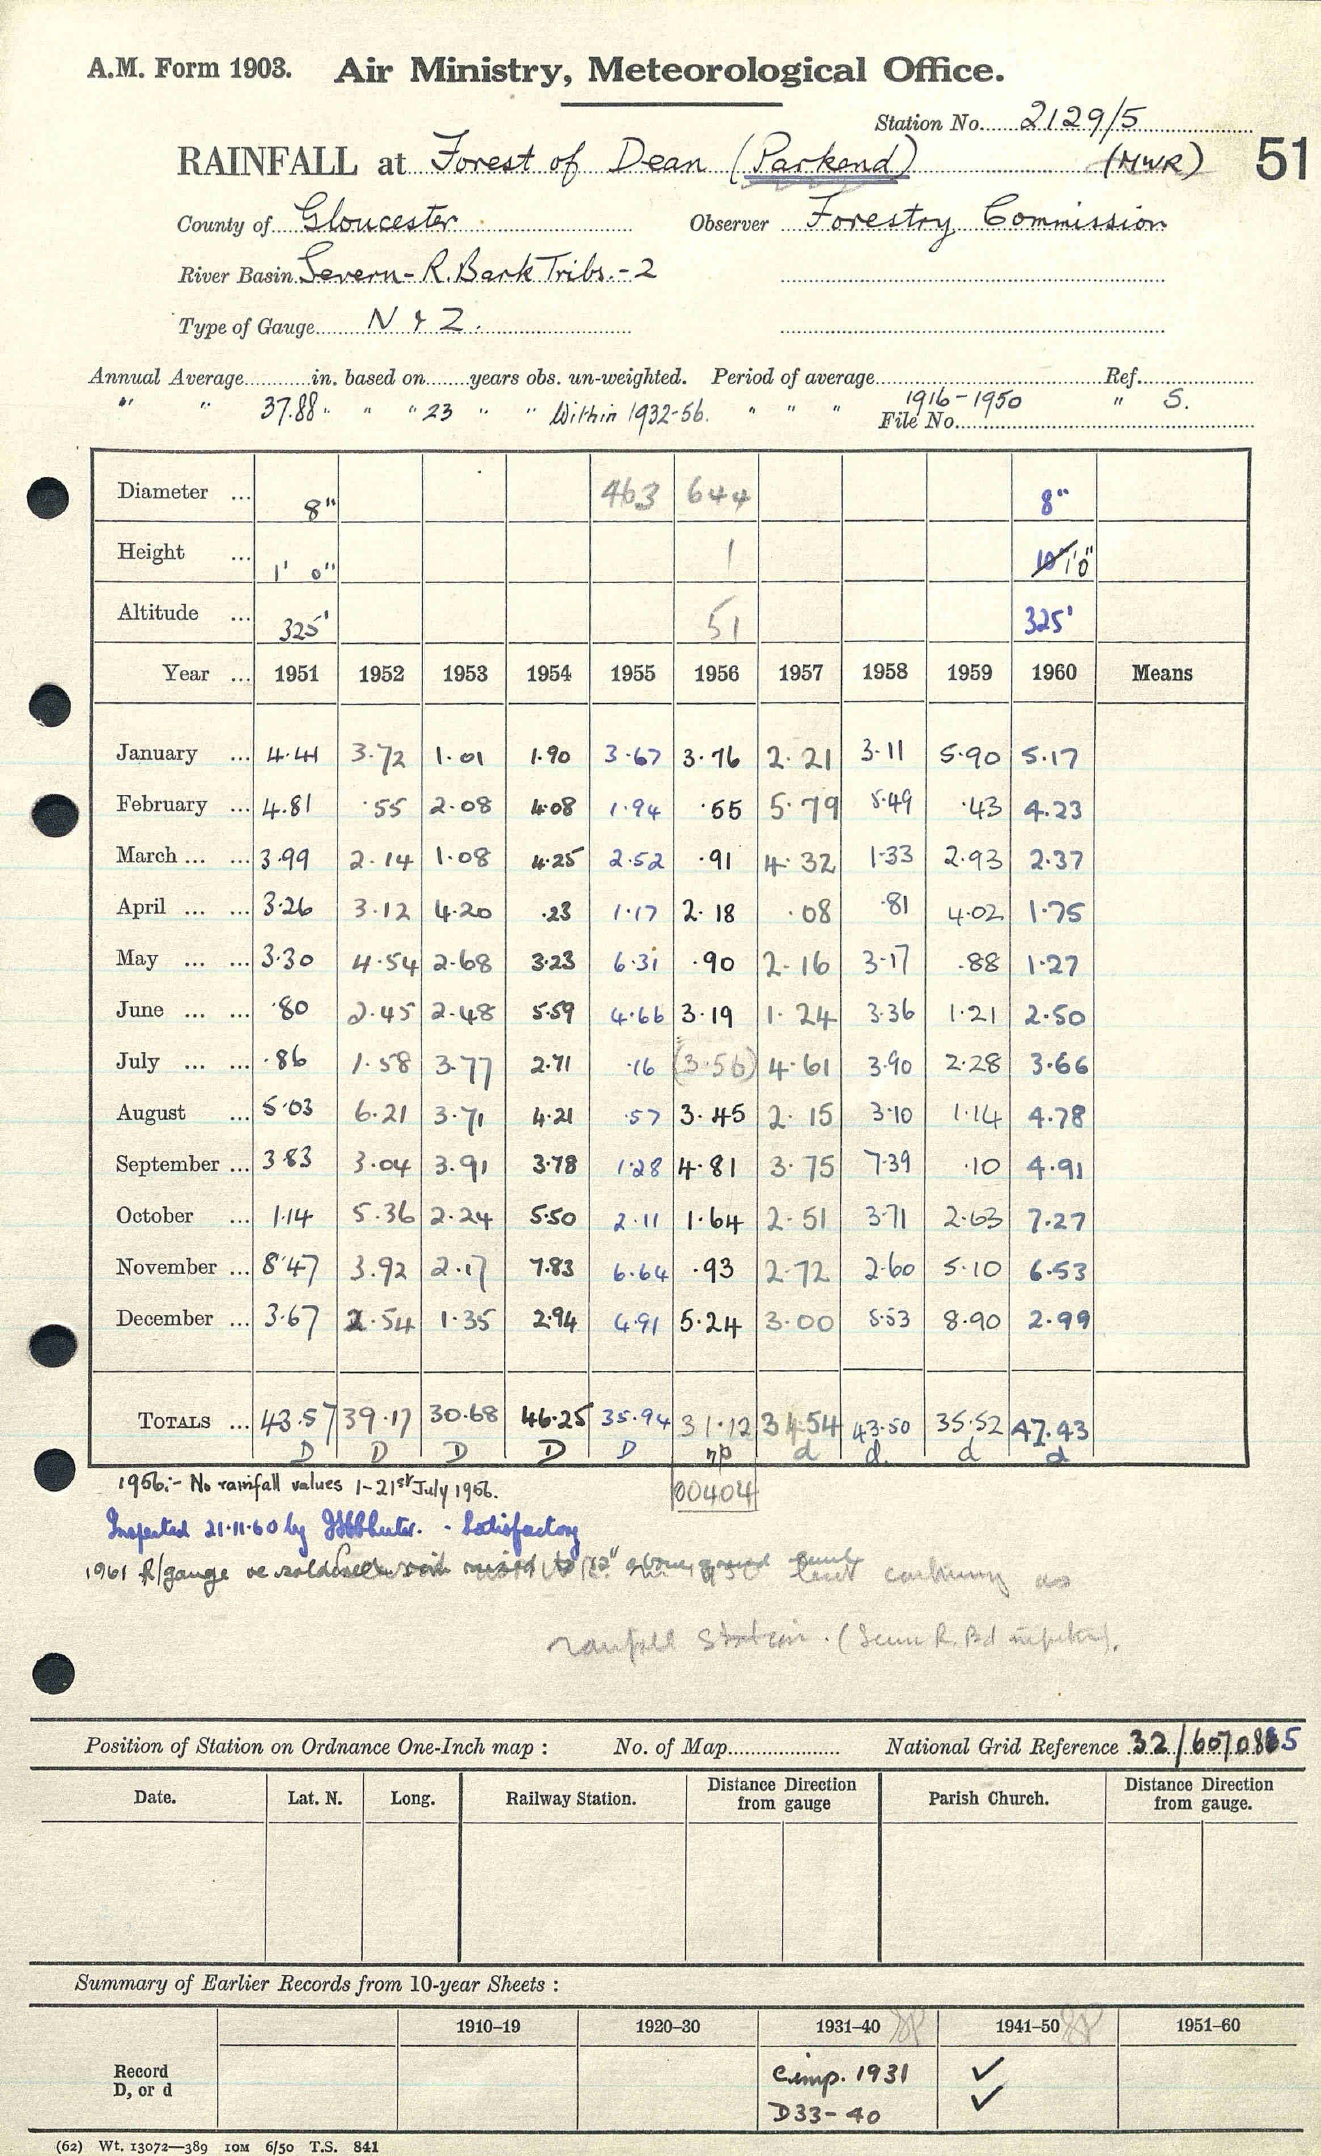 A.M. Form 1903. Air Ministry, Meteorological Office.
Station No. 2129/5
RAINFALL at Forest of Dean (Parkend) (MWR) 51
County of Gloucester Observer Forestry Commission
River Basin Severn - R. Bank Tribs. - 2
Type of Gauge N & Z.
Annual Average in. based on years obs. un-weighted. Period of average Ref.
" " 37.88 " " " 23 " " Within 1932-56. " " " 1916-1950 " S.
File No.
Diameter ... 8" 463 644 8"
Height ... 1' 0" 1 10" 1'0"
Altitude ... 325' 51 325'
Year ... 1951 1952 1953 1954 1955 1956 1957 1958 1959 1960 Means
January ... 4.41 3.72 1.01 1.90 3.67 3.76 2.21 3.11 5.90 5.17
February ... 4.81 .55 2.08 4.08 1.94 .55 5.79 5.49 .43 4.23
March ... ... 3.99 2.14 1.08 4.25 2.52 .91 4.32 1.33 2.93 2.37
April ... ... 3.26 3.12 4.20 .23 1.17 2.18 .08 .81 4.02 1.75
May ... ... 3.30 4.54 2.68 3.23 6.31 .90 2.16 3.17 .88 1.27
June ... ... .80 2.45 2.48 5.59 4.66 3.19 1.24 3.36 1.21 2.50
July ... ... .86 1.58 3.77 2.71 .16 (3.56) 4.61 3.90 2.28 3.66
August ... 5.03 6.21 3.71 4.21 .57 3.45 2.15 3.10 1.14 4.78
September ... 3.83 3.04 3.91 3.78 1.28 4.81 3.75 7.39 .10 4.91
October ... 1.14 5.36 2.24 5.50 2.11 1.64 2.51 3.71 2.63 7.27
November ... 8.47 3.92 2.17 7.83 6.64 .93 2.72 2.60 5.10 6.53
December ... 3.67 2.54 1.35 2.94 4.91 5.24 3.00 5.53 8.90 2.99
TOTALS ... 43.57 39.17 30.68 46.25 35.94 31.12 34.54 43.50 35.52 47.43
D D D D D np d d. d d
1956:- No rainfall values 1-21st July 1956. 00404
Inspected 21.11.60 by - Satisfactory
1961 R/gauge re soldered rim raised to 12" above ground
rainfall station. (Severn R. Bd
Position of Station on Ordnance One-Inch map : No. of Map National Grid Reference 32/607085
Date. Lat. N. Long. Railway Station. Distance Direction from gauge Parish Church. Distance Direction from gauge.
Summary of Earlier Records from 10-year Sheets :
1910-19 1920-30 1931-40 1941-50 1951-60
Record Cimp. 1931 ✓
D, or d D33-40 ✓
(62) Wt. 13072—389 10M 6/50 T.S. 841